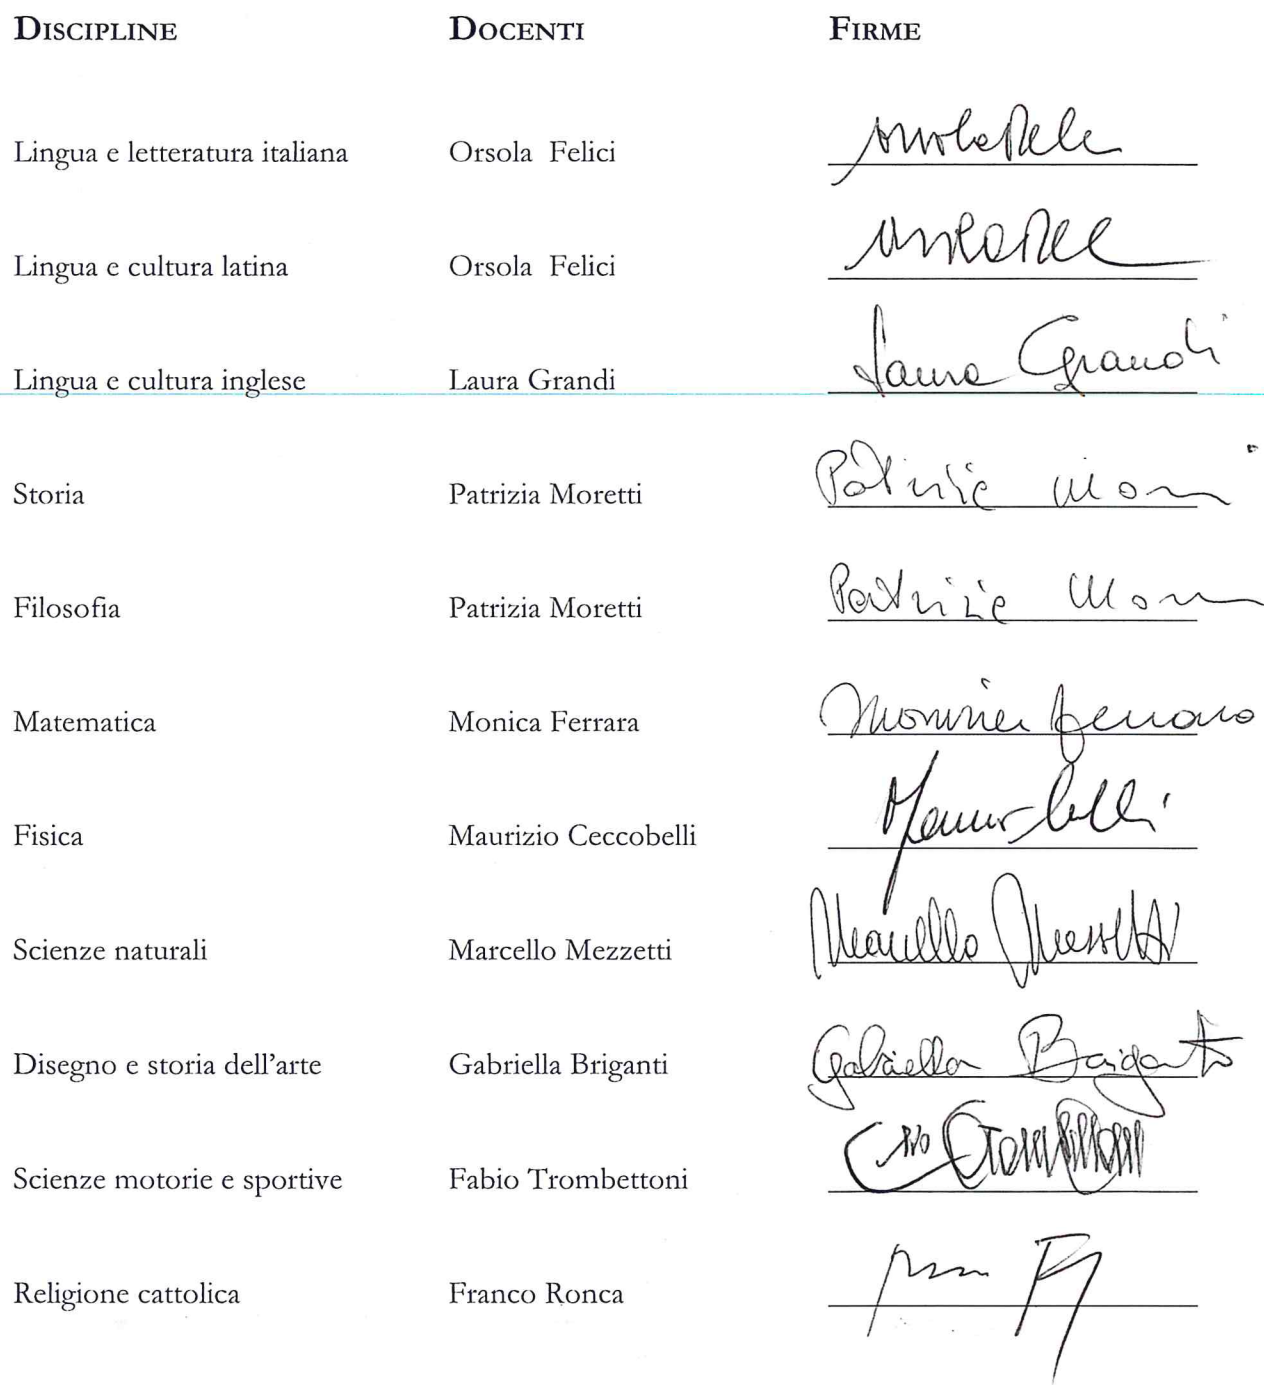 DISCIPLINE DOCENTI FIRME
Lingua e letteratura italiana Orsola Felici
Lingua e cultura latina Orsola Felici
Lingua e cultura inglese Laura Grandi Laura Grandi
Storia Patrizia Moretti Patrizia
Filosofia Patrizia Moretti Patrizia
Matematica Monica Ferrara Monica Ferrara
Fisica Maurizio Ceccobelli
Scienze naturali Marcello Mezzetti Marcello Mezzetti
Disegno e storia dell'arte Gabriella Briganti Gabriella Briganti
Scienze motorie e sportive Fabio Trombettoni
Religione cattolica Franco Ronca